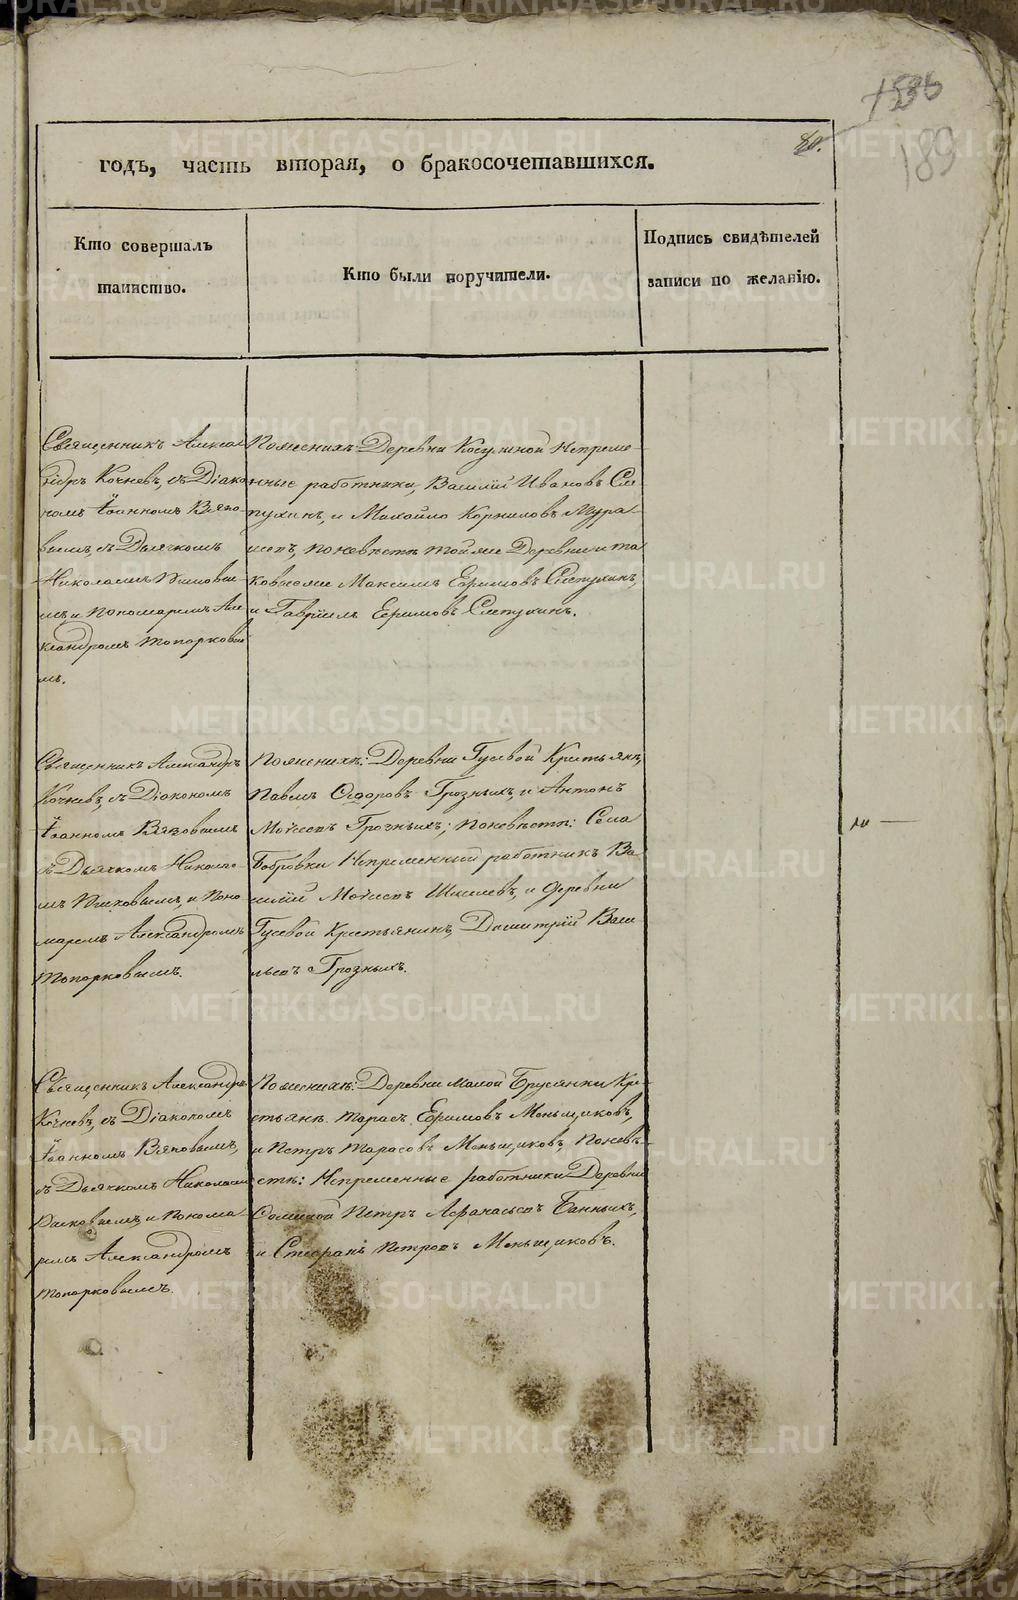 80.
189
годъ, часть вторая, о бракосочетавшихся.
Кто совершалъ
таинство.
Кто были поручители.
Подпись свидѣтелей
записи по желанію.
Священникъ Алексан
дръ Кочневъ, съ Діако
номъ Іоанномъ Вязо-
вымъ, съ Дьячкомъ
Николаемъ
мъ и Пономаремъ Але
ксандромъ Топорковы
мъ.
По женихѣ: Деревни Косулиной Непреме-
нные работники, Василій Ивановъ Сле
пухинъ, и Михайло Корниловъ Мура-
шевъ, по невѣстѣ тойже Деревни и та
ковыеже Максимъ Ефимовъ Слепухинъ,
и Гавріилъ Ефимовъ Слепухинъ.
Священникъ Александръ
Кочневъ, съ Діакономъ
Іоанномъ Вязовымъ
съ Дьячкомъ Никола-
емъ и Поно
маремъ Александромъ
Топорковымъ.
По женихѣ: Деревни Гусевой Крестьяне,
Павелъ Федоровъ Грозныхъ, и Антонъ
Моѵсеевъ Грозныхъ; по невѣсты: Села
Бобровки Непременный работникъ Ва
силій Моѵсеевъ и деревни
Гусевой Крестьянинъ, Димитрій Васи-
льевъ Грозныхъ.
ли —
Священникъ Александръ
Кочневъ, съ Діакономъ
Іоанномъ Вязовымъ,
съ Дьячкомъ Николаемъ
и Понома-
ремъ Александромъ
Топорковымъ.
По женихѣ: Деревни Малой Брусянки Кре-
стьяне Тарасъ Ефимовъ Меньщиковъ,
и Петръ Тарасовъ Меньщиковъ, По невѣ-
стѣ: Непременные работники Деревни
Петръ Афанасьевъ Банныхъ,
и Стефанъ Петровъ Меньщиковъ.
METRIKI.GASO-URAL.RU